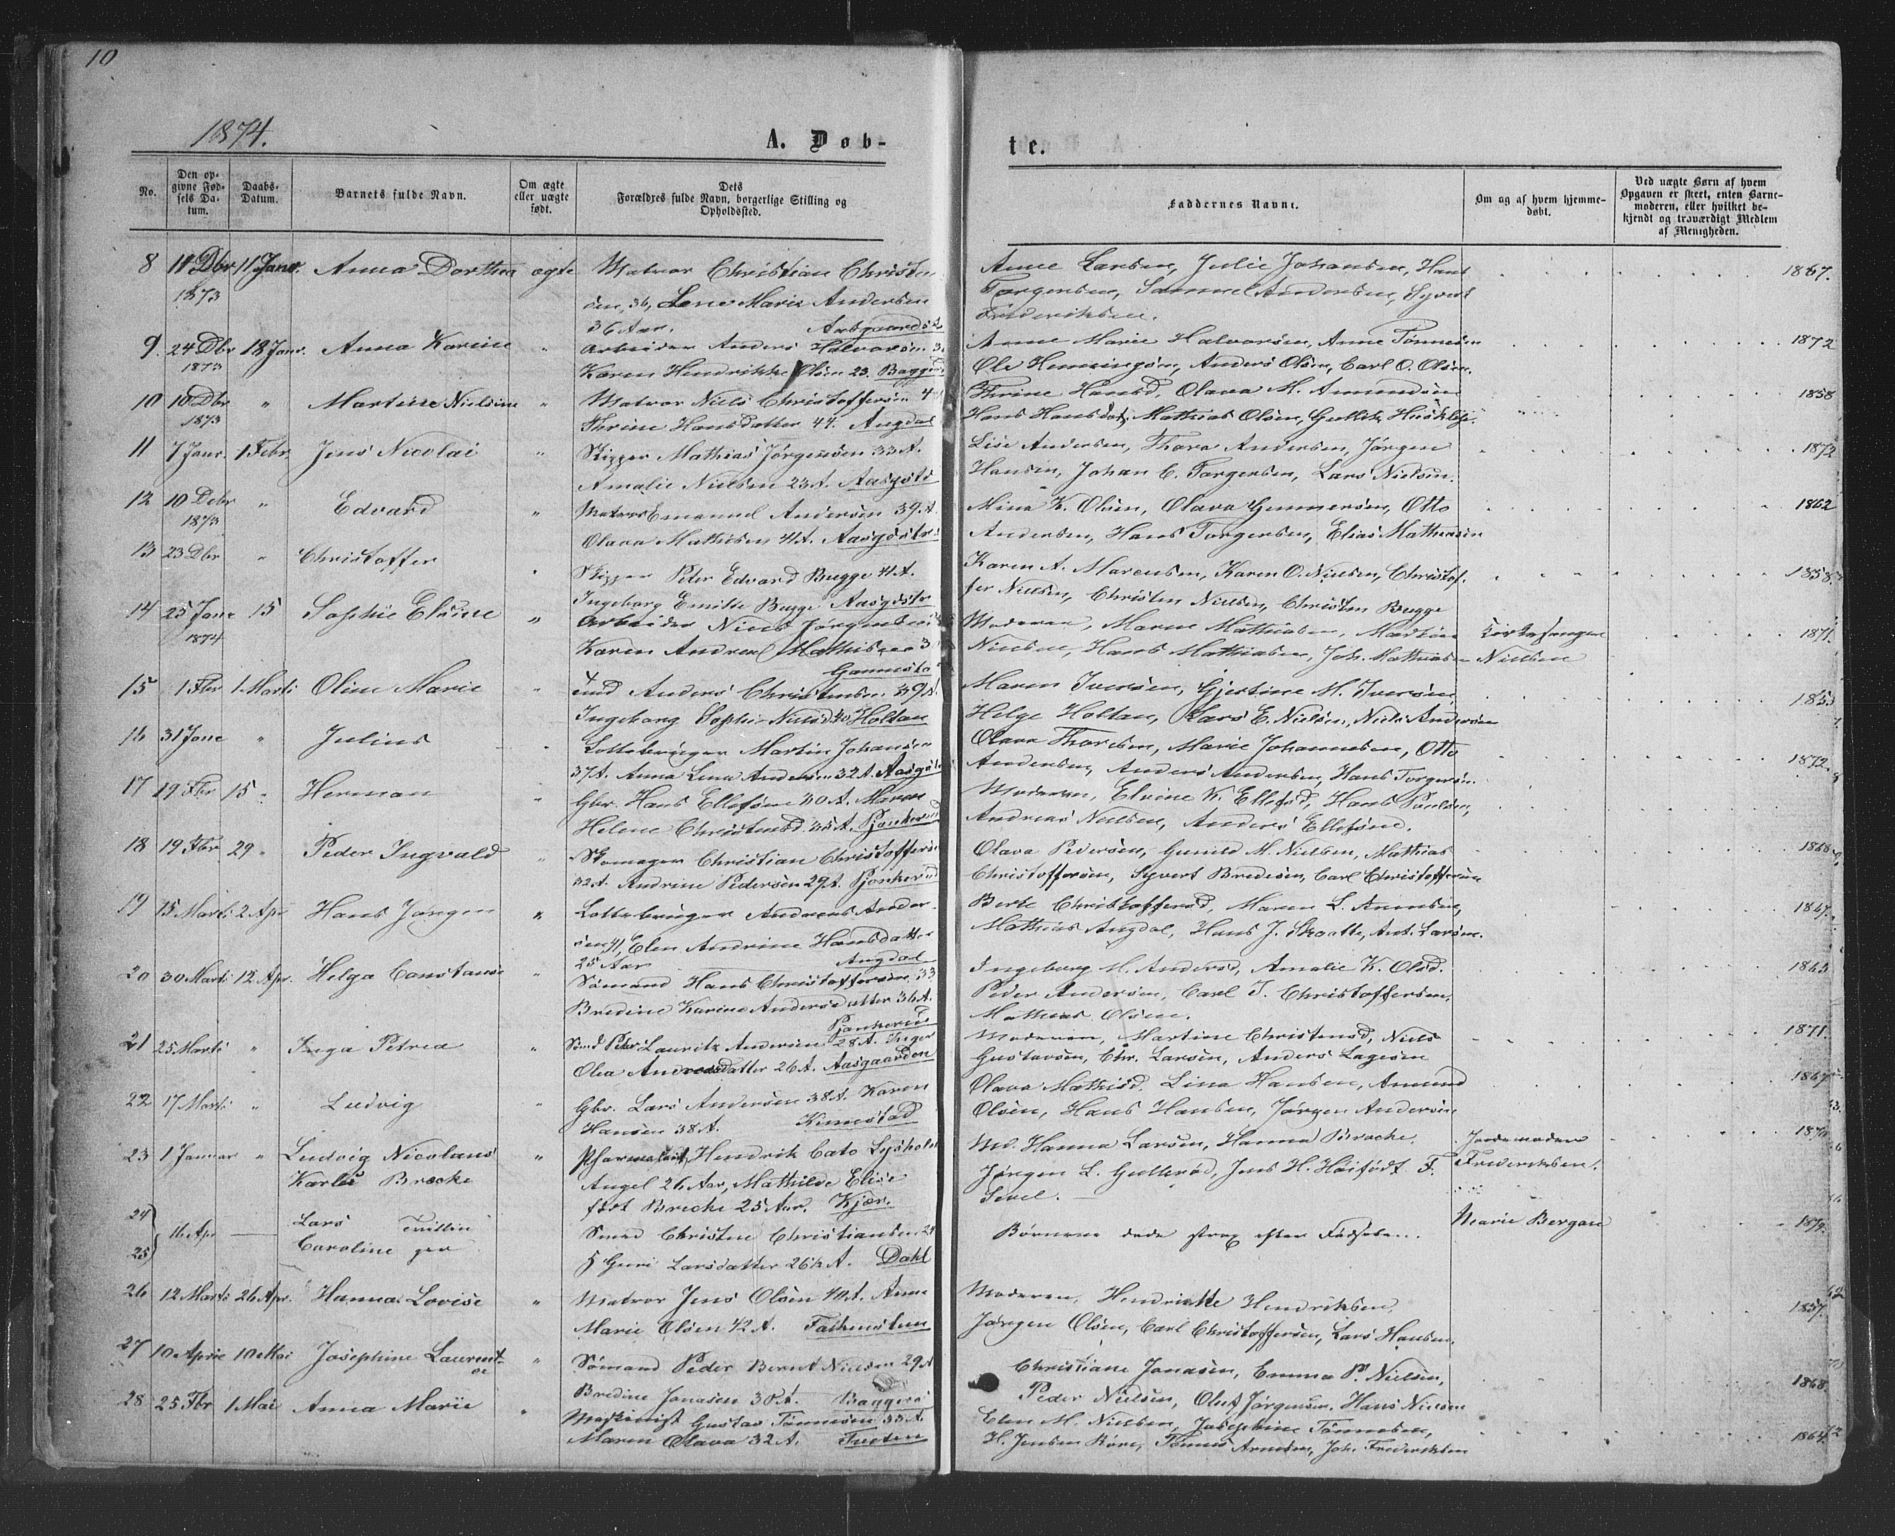 10
1874.
A. Døb-
te.
No.
Den op-
givne Fød-
sels Da-
tum.
Daabs-
Datum.
Barnets fulde Navn.
Om ægte
eller uægte
født.
Dets
Forældres fulde Navn, borgerlige Stilling og
Opholdssted.
Faddernes Navne.
Om og af hvem hjemme-
døbt.
Ved uægte Børn af hvem
Opgaven er skeet, enten Barne-
moderen, eller hvilket be-
kjendt og troværdigt Medlem
af Menigheden.
8 11 Dbr 11 Janr. Anna Dorthea ægte Matros Christian Christen Anne Larsen, Julie Johansen, Hans 1867.
1873 sen, 36, Lene Marie Andersen Torgersen, Samuel Andersen, Syvert
36 Aar. Aasgaards Frederiksen.
9 24 Dbr 18 Janr. Anna Karine " Arbeider Anders Halvorsen Anne Marie Halvorsen, Anne Tønnesen 1872
1873 Karen Hendrikke Olsen 23. Ole Henningsen, Anders Olsen, Carl O. Olsen.
10 10 Dbr " Martine Nielsine " Matros Niels Christoffersen Thrine Hansd, Olava M. Amundsen 1858
1873 Thrine Hansdatter 44. Augdal Mathias Olsen,
11 7 Janr. 1 Febr. Jens Nicolai " Skipper Mathias Jørgensen 33 A. Lise Andersen, Thora Andersen, Jørgen 1872
Amalie Nielsen 23 A. Aasgsts Hansen, Johan C. Torgersen, Lars Nielsen.
12 10 Debr " Edvard " Matros Emanuel Andersen 39 A. Mina K. Olsen, Olava Gunnersen, Otto 1862
1873 Olava Mathisen 41 A. Aasgdstr Andersen, Hans Torgersen, Elias Mathiesen
13 23 Dbr " Christoffer " Skipper Peter Edvard Bugge 41 A. Karen A. Marcusen, Karen O. Nielsen, Christof- 1858
Ingeborg Emilie Bugge Aasgdstr fer Nielsen, Christen Nielsen, Christen Bugge
14 25 Jane 15 Sophie Elisine " Arbeider Niels Jørgensen Moderen, Maren Mathiasen, Kirkesanger 1871.
1874 Karen Andrea Mathisen Nielsen, Hans Mathiasen, Joh. Mathiasen Nielsen
15 1 Fbr 1 Marts Oline Marie " Anders Christensen 49 A. Maren Iversen, Gjertine M. Iversen, 1853
Ingeborg Sophie Holtan Helge Holtan, Lars E. Nielsen, Niels Andersen
16 31 Jane " Julius " Lottebruger Martin Johansen Olava Thoresen, Marie Johannesen, Otto 1872.
37 A. Anna Lena Andersen 32 A. Andersen, Anders Andersen, Hans Torgersen.
17 19 Fbr 15 " Herman " Gbr. Hans Ellefsen 40 A. Maren Moderen, Elvine K. Ellefsd, Hans Poulsen,
Helene Christensd. 35 A. Pjonkerud Andreas Nielsen, Anders Ellefsen.
18 19 Fbr 29 " Peder Ingvald " Skomager Christian Christoffersen Olava Pedersen, Gunild M. Nielsen, Mathias 1868
32 A. Andrine Pedersen 29 A. Pjonkerud Christoffersen, Syvert Bredesen, Carl Christoffersen
19 15 Marts 2 Apr Hans Jørgen " Lottebruger Andreas Ander- Berte Christoffersd, Maren L. Annesen, 1867.
sen 41, Elen Andrine Hansdatter Mathias Augdal, Hans J. Skaatte, Ant. Larsen.
25 Aar Augdal
20 30 Marts 12 Apr. Helga Constanse " Sømand Hans Christoffersen 33 Ingeborg M. Andersd, Amalie K. Olsd. 1863
Bredine Karine Andersdatter 36 A. Peder Andersen, Carl J. Christoffersen,
Pjonkerud Mathias Olsen.
21 25 Marts " Inga Petrea " Smd Peter Lauritz Andersen 28 A. Inger Moderen, Martine Christensd, Niels 1871.
Olea Andreasdatter 26 A. Aasgaarden Gustavsen, Chr. Larsen, Anders Lagesen
22 17 Marts " Ludvig " Gbr. Lars Andersen 38 A. Karen Olava Mathisd. Lina Hansen, Amund 1867
Hansen 38 A. Kinnestad Olsen, Hans Hansen, Jørgen Andersen
23 1 Januar " Ludvig Nicolaus " Hendrik Cato Lysholm Md. Hanna Larsen, Hanna Brecke, Jordemoder
Karlus Brecke Angel 26 Aar, Mathilde Elise Jørgen L. Gullerød, Jens H. Høifødt F. Frederiksen.
født Brecke 25 Aar. Kjær.
24 Lars Tvillin Smd Christen Christiansen Børnene døde strax efter Fødselen. Marie Bergan 1872.
25 16 Apr Caroline ger Guri Larsdatter 26½ A. Dahl
26 12 Marts 26 Apr. Hanna Lovise " Matros Jens Olsen 40 A. Anne Moderen, Henriette Hendriksen, 1857.
Marie Olsen 42 A. Falkensten Jørgen Olsen, Carl Christoffersen, Lars Hansen.
27 10 Aprie 10 Mai Josephine Laurent- " Sømand Peder Bernt Nielsen 29 A Christiane Jonasen, Emma P. Nielsen, 1868
se Bredine Jonasen 30 A. Baggerød Peder Nielsen, Oluf Jørgensen, Hans Nielsen
28 25 Fbr 1 Mai Anna Marie " Maskinist Gustav Tønnesen 33 A. Elen M. Nielsen, Josephine Tønnesen, 1864
Maren Olava 32 A. H. Jensen Røre, Tønnes Arnesen, Joh. Frederiksen